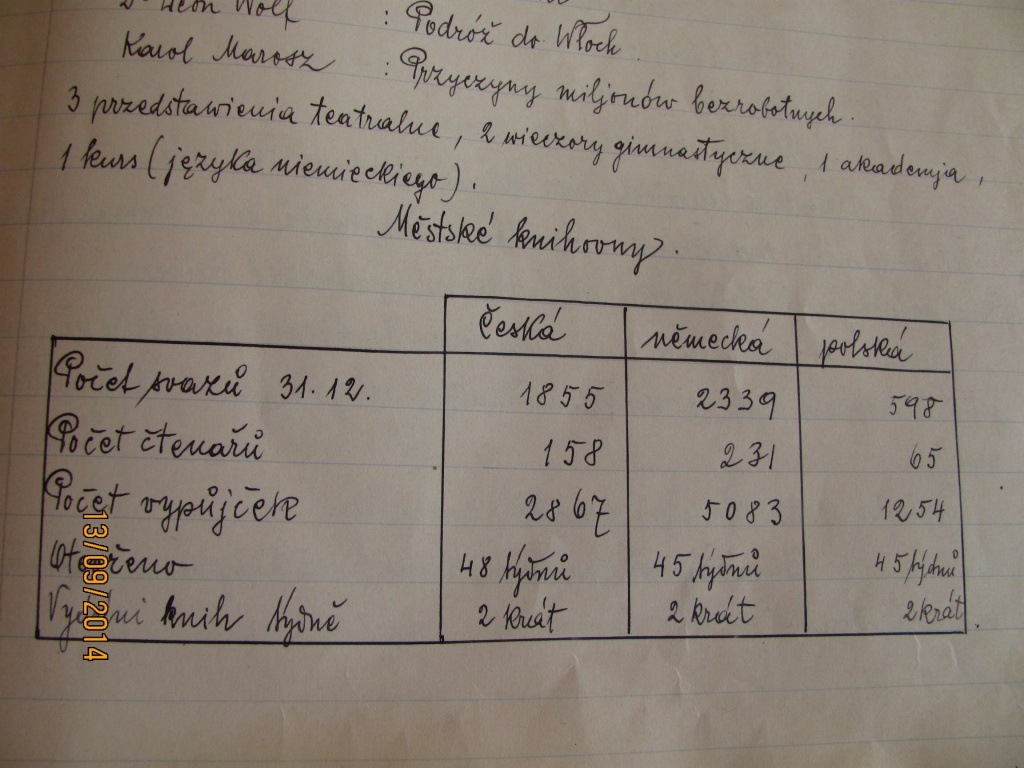 Dr Leon Wolf : Podróž do Włoch
Karol Marosz : Przyczyny miljonów bezrobotnych.
3 przedstawienia teatralne, 2 wieczory gimnastyczne, 1 akademja,
1 kurs (języka niemieckiego).
Městské knihovny.
česká německá polská
Počet svazů 31.12. 1855 2339 598
Počet čtenařů 158 231 65
Počet vypůjček 2867 5083 1254
Otevřeno 48 týdnů 45 týdnů 45 týdnů
Vydání knih týdně 2 krát 2 krát 2 krát
13/09/2014